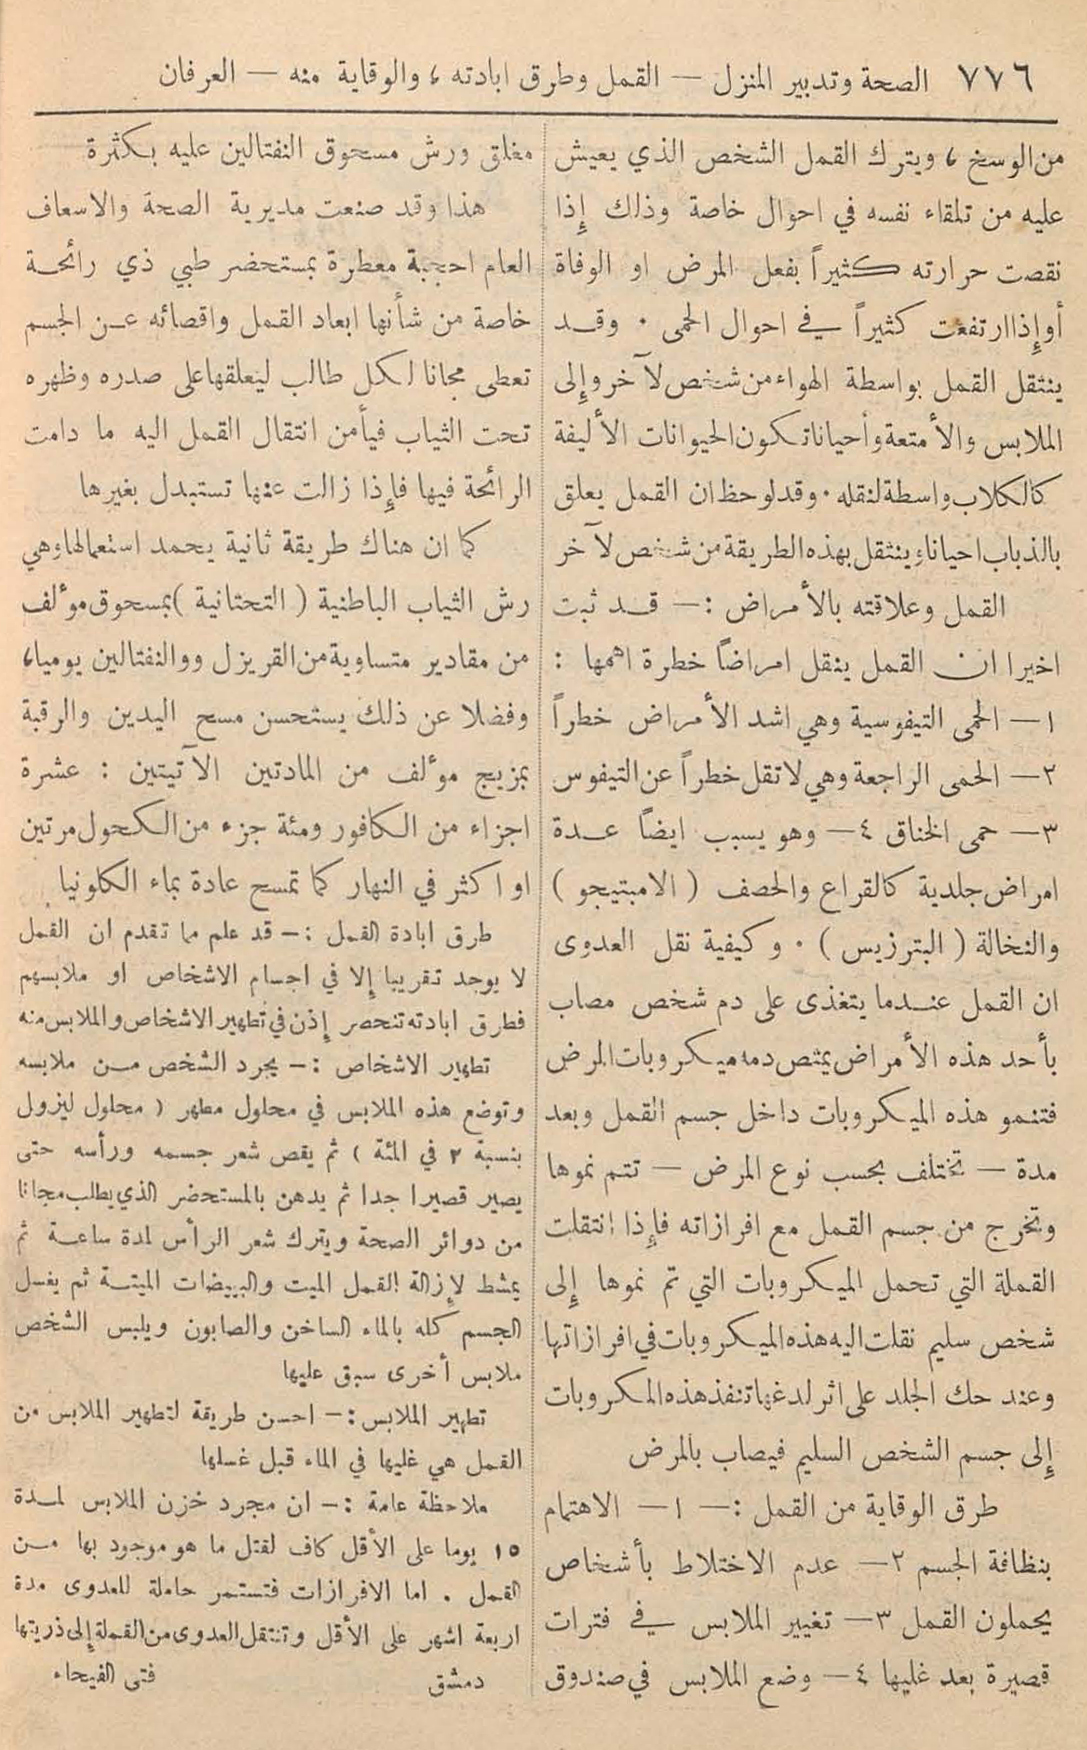 ٧٧٦ الصحة وتدبير المنزل — القمل وطرق ابادته ، والوقاية منه — العرفان
من الوسخ ، ويترك القمل الشخص الذي يعيش
عليه من تلقاء نفسه في احوال خاصة وذلك إذا
نقصت حرارته كثيراً بفعل المرض او الوفاة
أو إذا ارتفعت كثيراً في احوال الحمى . وقد
ينتقل القمل بواسطة الهواء من شخص لآخر وإلى
الملابس والأمتعة وأحيانا تكون الحيوانات الأليفة
كالكلاب واسطة لنقله . وقد لوحظ ان القمل يعلق
بالذباب احيانا وينتقل بهذه الطريقة من شخص لآخر
القمل وعلاقته بالأمراض :— قد ثبت
اخيرا ان القمل ينقل امراضاً خطرة اهمها :
١— الحمى التيفوسية وهي اشد الأمراض خطراً
٢— الحمى الراجعة وهي لا تقل خطراً عن التيفوس
٣— حمى الخناق ٤— وهو يسبب ايضاً عدة
امراض جلدية كالقراع والحصف ( الامبتيجو )
والنخالة ( البترزيس ) . وكيفية نقل العدوى
ان القمل عندما يتغذى على دم شخص مصاب
بأحد هذه الأمراض يمتص دمه ميكروبات المرض
فتنمو هذه الميكروبات داخل جسم القمل وبعد
مدة — تختلف بحسب نوع المرض — تتم نموها
وتخرج من جسم القمل مع افرازاته فإذا انتقلت
القملة التي تحمل الميكروبات التي تم نموها إلى
شخص سليم نقلت اليه هذه الميكروبات في افرازاتها
وعند حك الجلد على اثر لدغها تنفذ هذه المكروبات
إلى جسم الشخص السليم فيصاب بالمرض
طرق الوقاية من القمل :— ١— الاهتمام
بنظافة الجسم ٢— عدم الاختلاط بأشخاص
يحملون القمل ٣— تغيير الملابس في فترات
قصيرة بعد غليها ٤— وضع الملابس في صندوق
مغلق ورش مسحوق النفتالين عليه بكثرة
هذا وقد صنعت مديرية الصحة والاسعاف
العام احجبة معطرة بمستحضر طبي ذي رائحة
خاصة من شأنها ابعاد القمل واقصائه عن الجسم
تعطى مجانا لكل طالب ليعلقها على صدره وظهره
تحت الثياب فيأمن انتقال القمل اليه ما دامت
الرائحة فيها فإذا زالت عنها تستبدل بغيرها
كما ان هناك طريقة ثانية يحمد استعمالها وهي
رش الثياب الباطنية ( التحتانية ) بمسحوق مؤلف
من مقادير متساوية من القريزل ووالنفتالين يوميا،
وفضلا عن ذلك يستحسن مسح اليدين والرقبة
بمزيج مؤلف من المادتين الآتيتين : عشرة
اجزاء من الكافور ومئة جزء من الكحول مرتين
او اكثر في النهار كما تمسح عادة بماء الكلونيا
طرق ابادة القمل :— قد علم مما تقدم ان القمل
لا يوجد تقريبا إلا في اجسام الاشخاص او ملابسهم
فطرق ابادته تنحصر إذن في تطهير الاشخاص والملابس منه
تطهير الاشخاص :— يجرد الشخص من ملابسه
وتوضع هذه الملابس في محلول مطهر ( محلول ليزول
بنسبة ٢ في المئة ) ثم يقص شعر جسمه ورأسه حتى
يصير قصيرا جدا ثم يدهن بالمستحضر الذي يطلب مجانا
من دوائر الصحة ويترك شعر الرأس لمدة ساعة ثم
يمشط لإزالة القمل الميت والبيضات الميتة ثم يغسل
الجسم كله بالماء الساخن والصابون ويلبس الشخص
ملابس أخرى سبق عليها
تطهير الملابس :— احسن طريقة لتطهير الملابس من
القمل هي غليها في الماء قبل غسلها
ملاحظة عامة :— ان مجرد خزن الملابس لمدة
١٥ يوما على الأقل كاف لقتل ما هو موجود بها من
القمل . اما الافرازات فتستمر حاملة للعدوى مدة
اربعة اشهر على الأقل وتنتقل العدوى من القملة إلى ذريتها
دمشق فتى الفيحاء